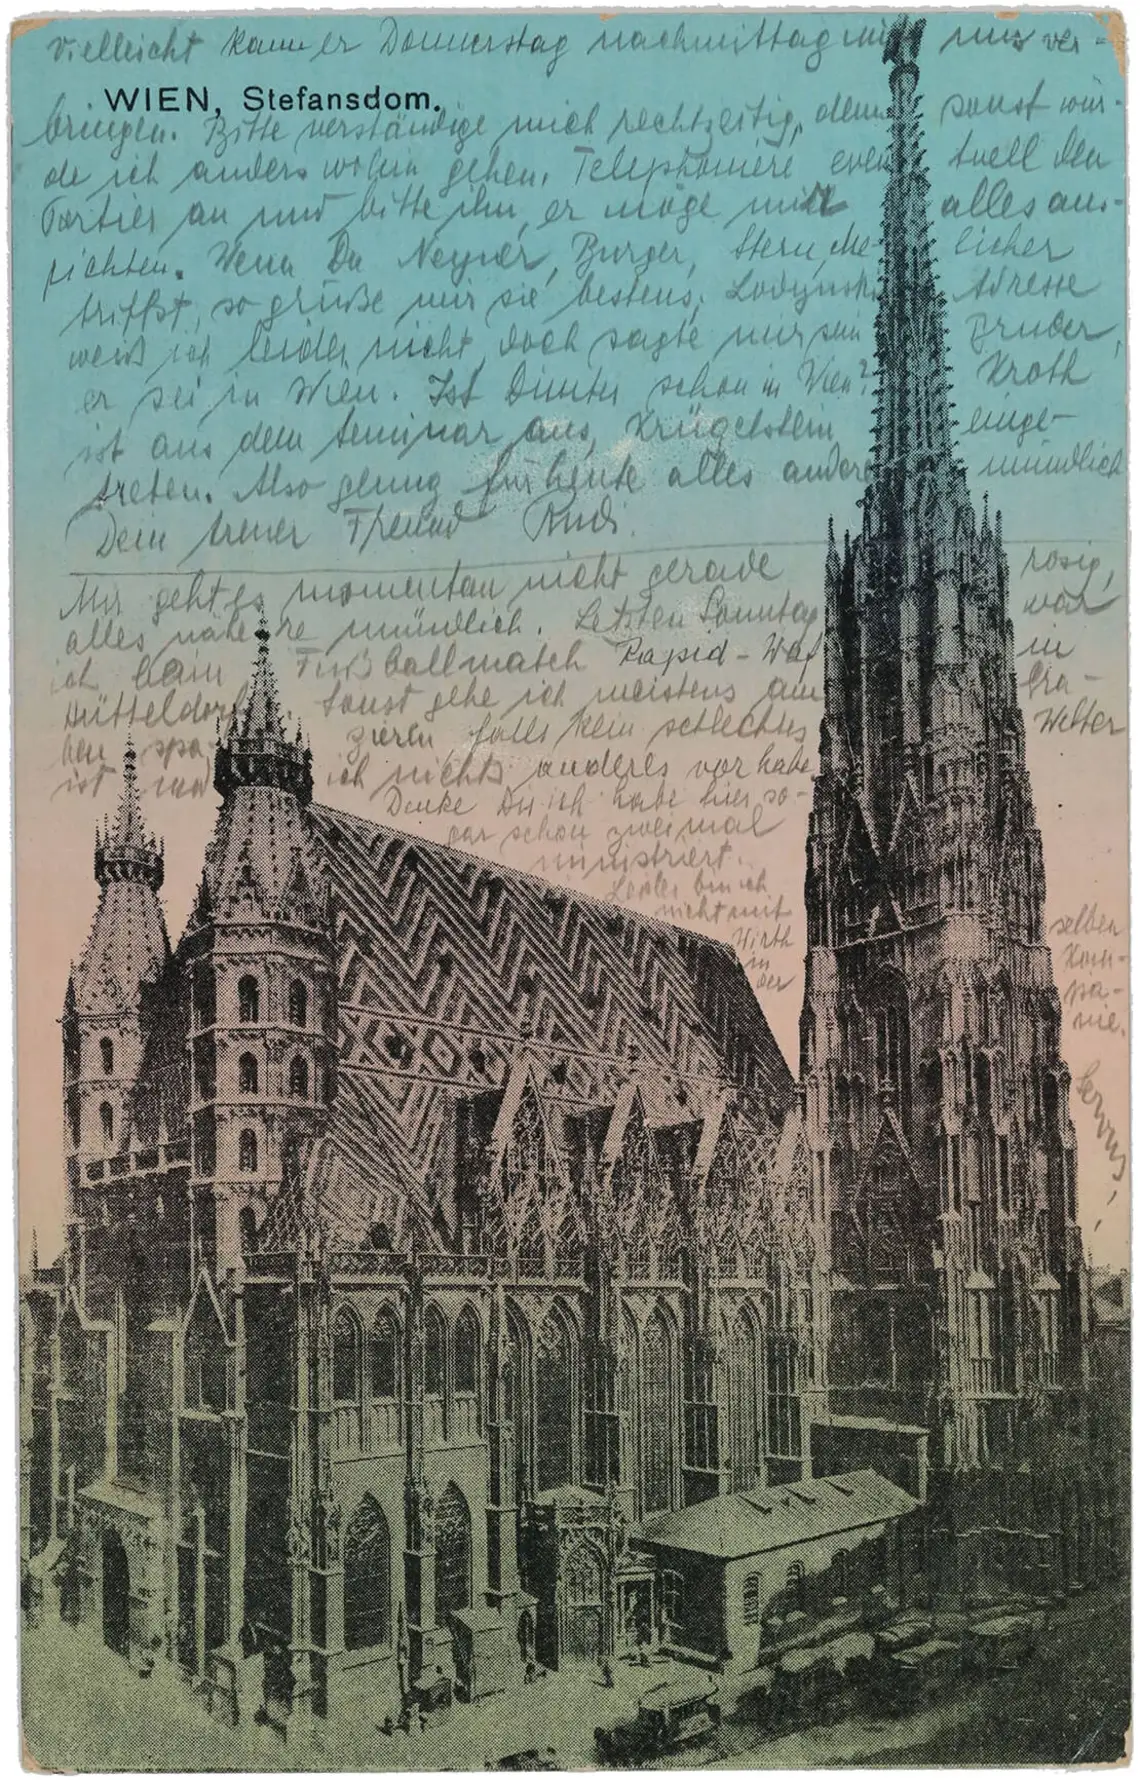 vielleicht kann er Donnerstag nachmittag mit uns ver-
WIEN, Stefansdom.
bringen. Bitte verständige mich rechtzeitig, denn sonst wür-
de ich anders wohin gehen. Telephoniere even tuell den
Portier an und bitte ihn, er möge mir alles aus-
richten. Wenn Du Burger, Stern, Me- licher
triffst, so grüße mir sie bestens. Adresse
weiß ich leider nicht, doch sagte mir sein Bruder,
er sei in Wien. Ist schon in Wien? Kroth
ist aus dem Seminar aus, Krügelstein einge-
treten. Also genug für heute alles andere mündlich
Dein treuer Freund Rudi.
Mir geht es momentan nicht gerade rosig,
alles nähere mündlich. Letzten Sonntag war
ich beim Fußballmatch Rapid - Waf in
Hütteldorf. Sonst gehe ich meistens am Gra-
ben spa- zieren falls kein schlechtes Wetter
ist und ich nichts anderes vor habe
Denke Dir ich habe hier so-
gar schon zweimal
ministriert.
Leider bin ich
nicht mit
Wirth
in
der selben
Kom-
pa-
nie.
Servus,